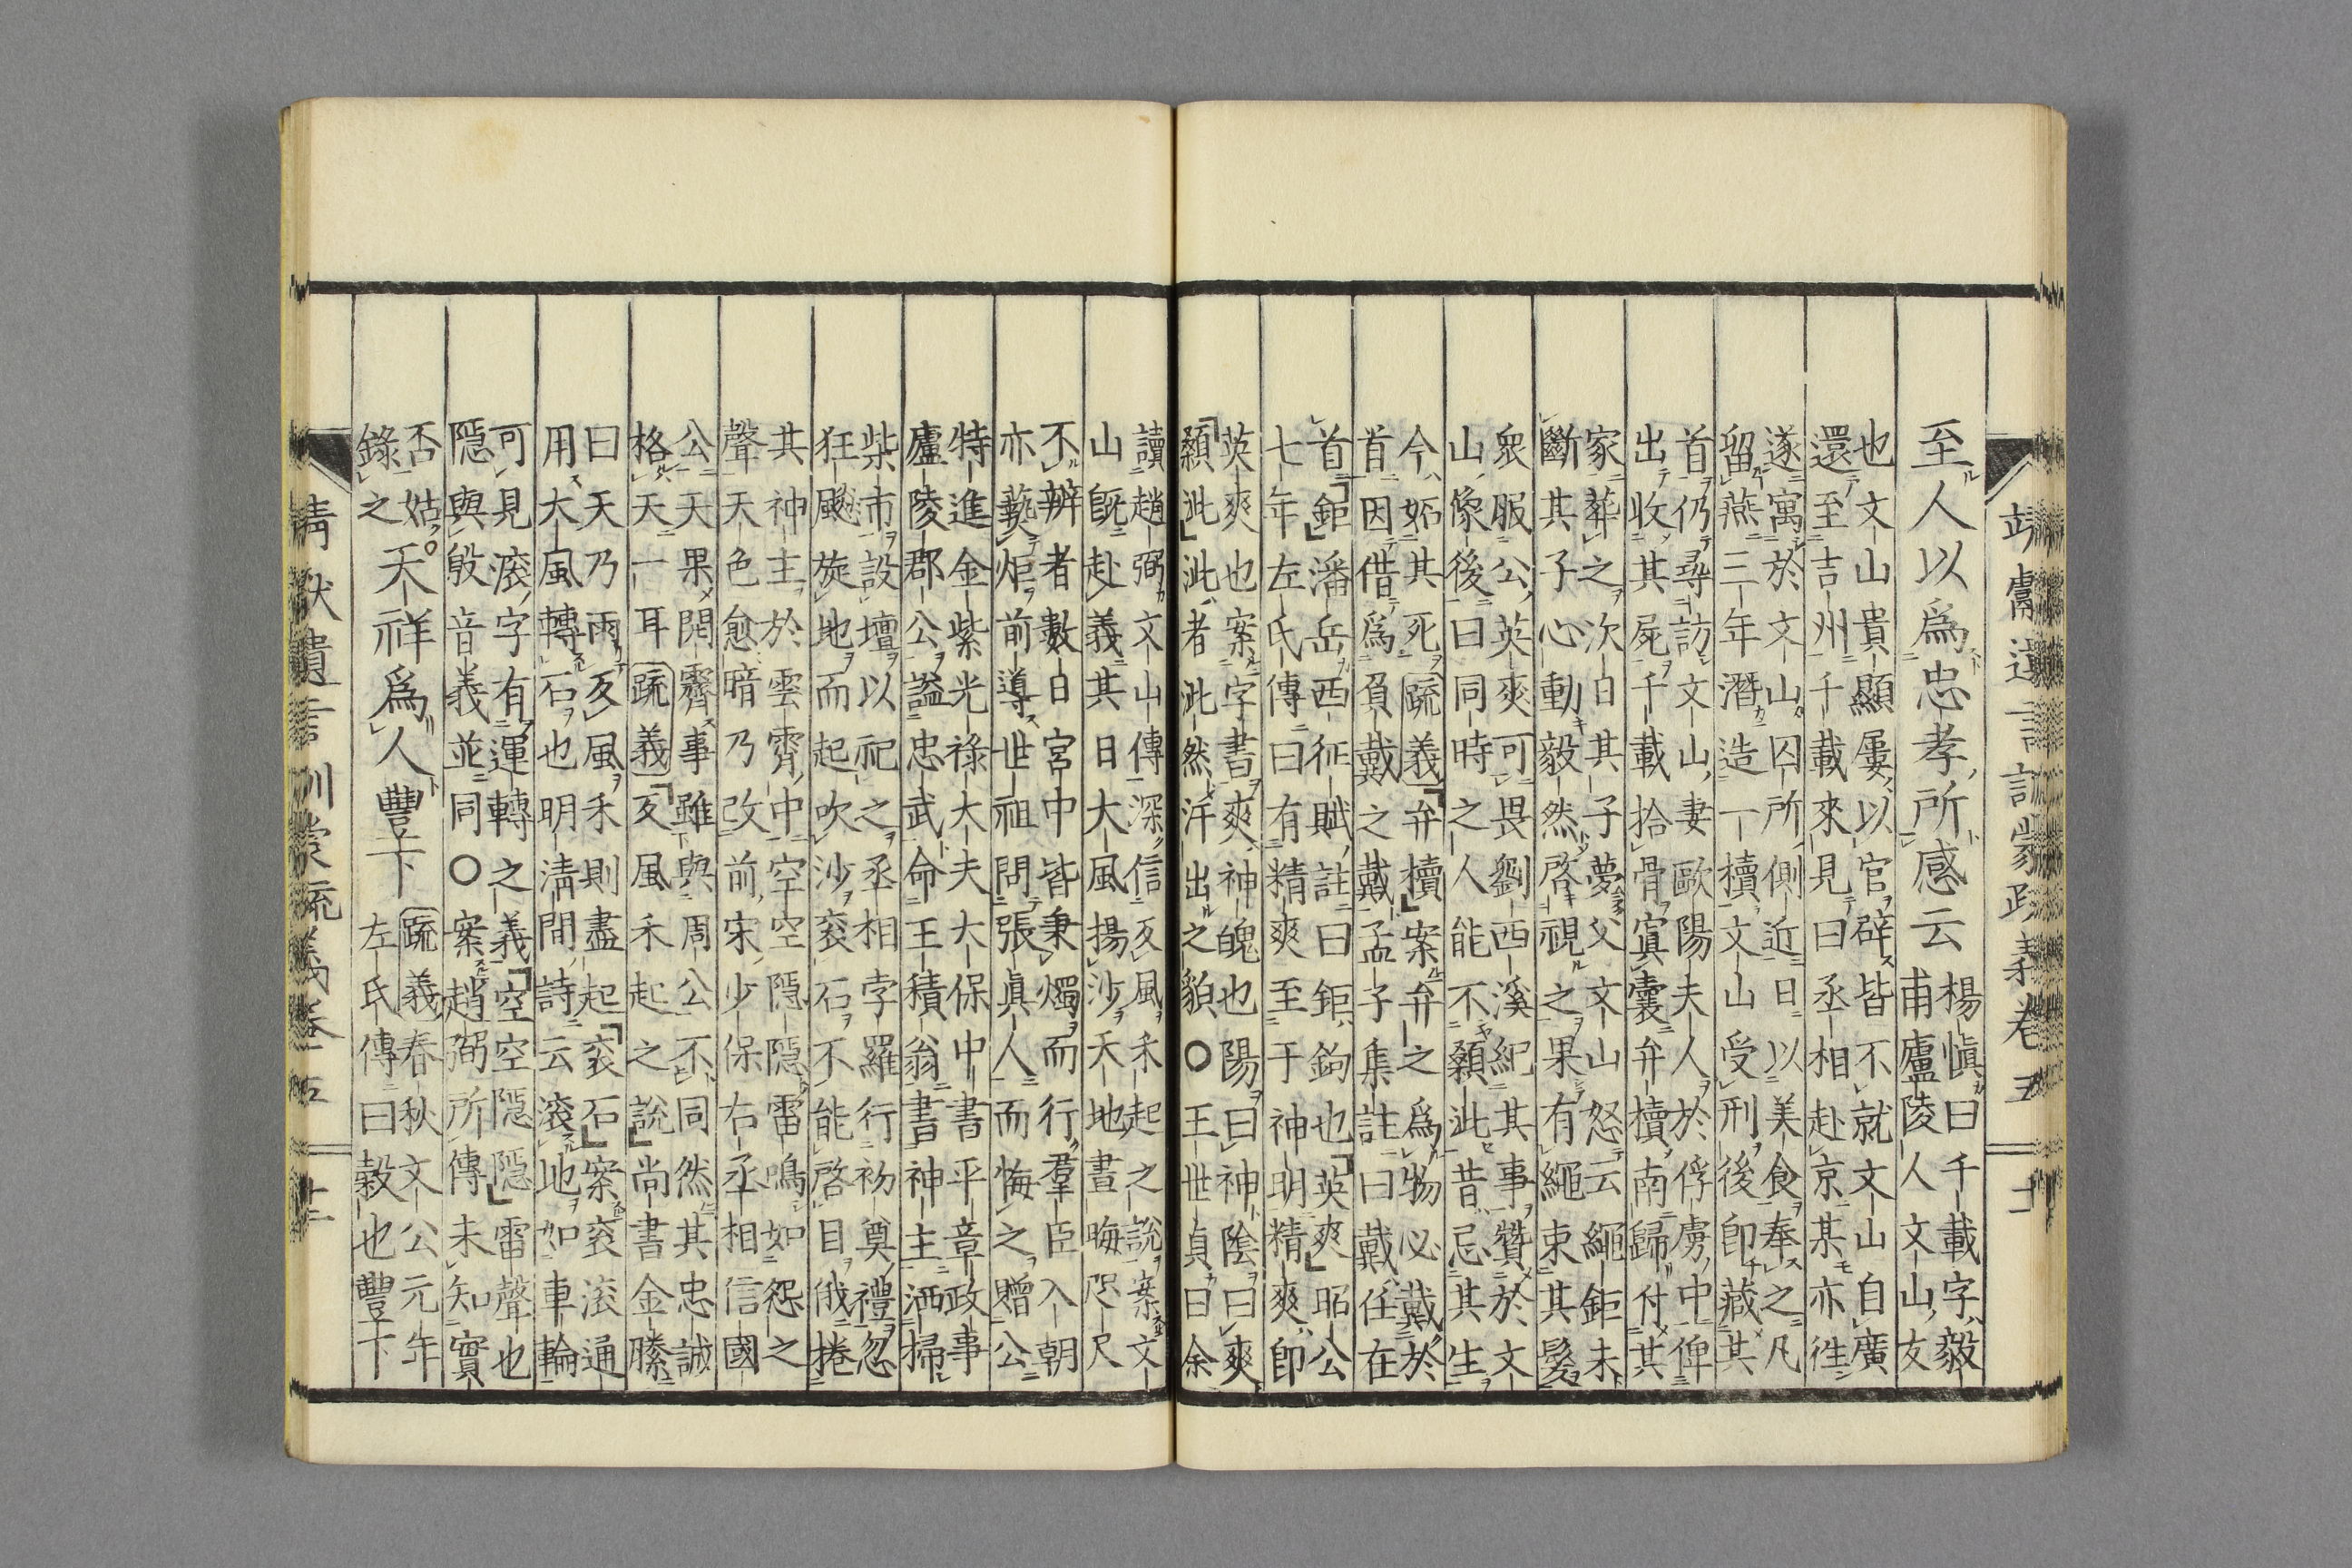 至人以爲忠孝所感云
楊愼曰千載字毅
甫廬陵人文山友
也文山貴顯屢以官辟皆不就文山自廣
還至吉州千載來見曰丞相赴京某亦徃
遂寓於文山囚所側近日以美食奉之凡
留燕三年潛造一櫝文山受刑後卽藏其
首仍尋訪文山妻歐陽夫人於俘虜中俾
出收其屍千載拾骨寘囊弁櫝南歸付其
家葬之次日其子夢父文山怒云繩鉅未
斷其子心動毅然啓視之果有繩束其髮
衆服公英爽可畏劉西溪紀其事贊於文
山像後曰同時之人能不顙泚昔忌其生
今妬其死疏義弁櫝案弁之爲物必戴於
首因借爲負戴之戴孟子集註曰戴任在
首鉅潘岳西征賦註曰鉅鉤也英爽昭公
七年左氏傳曰有精爽至于神明精爽卽
英爽也案字書爽神魄也陽曰神陰曰爽
顙泚泚者泚然汗出之貌○王世貞曰余
讀趙弼文山傳深信反風禾起之說案文
山旣赴義其日大風揚沙天地晝晦咫尺
不辨者數日宮中皆秉燭而行羣臣入朝
亦爇炬前導世祖問張眞人而悔之贈公
特進金紫光祿大夫大保中書平章政事
廬陵郡公謚忠武命王積翁書神主洒掃
柴市設壇以祀之丞相孛羅行初奠禮忽
狂飈旋地而起吹沙袞石不能啓目俄捲
其神主於雲霄中空空隱隱雷鳴如怨之
聲天色愈暗乃改前宋少保右丞相信國
公天果開霽事雖與周公不同然其忠誠
格天一耳疏義反風禾起之說尚書金縢
曰天乃雨反風禾則盡起袞石案袞滾通
用大風轉石也明淸間詩云滾地如車輪
可見滾字有運轉之義空空隱隱雷聲也
隱與殷音義並同○案趙弼所傳未知實
否姑
錄之
天祥爲人豐下
疏義春秋文公元年
左氏傳曰穀也豐下
靖獻遺言訓蒙疏義卷五